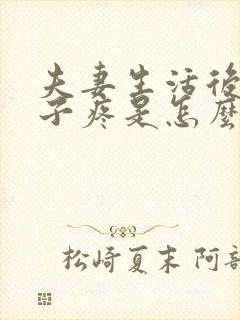 夫妻生活後
子疼是怎麼
松崎夏末 阿部